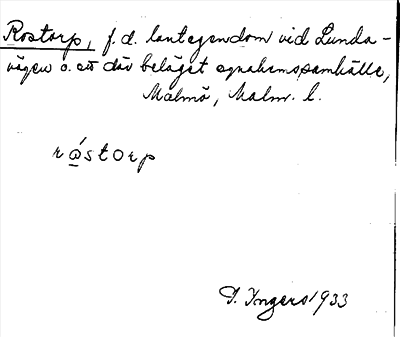 Rostorp, f.d. lantegendom vid Lunda-
vägen o. ett där beläget egnahemssamhälle,
Malmö, Malm. l.
råstorp
D. Ingers 1933